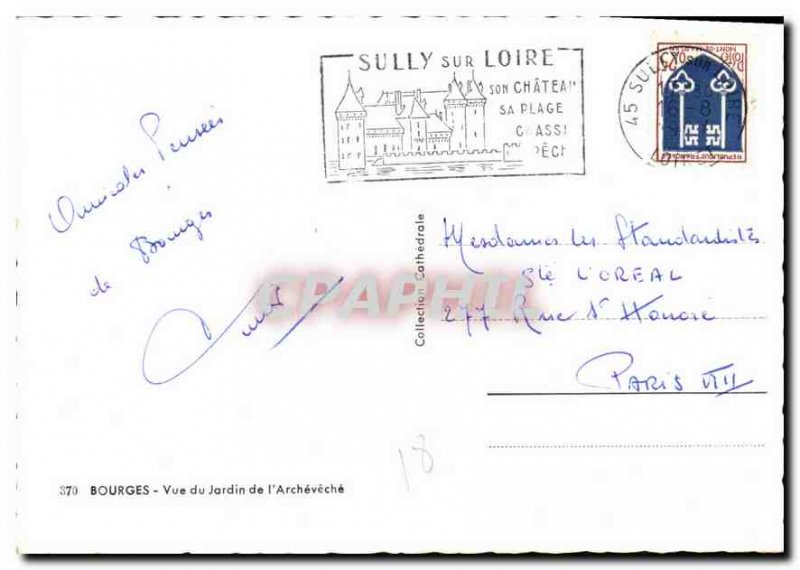 SULLY SUR LOIRE
SON CHÂTEAU
SA PLAGE
CHASSE
PÊCHE
45 SULLY SUR LOIRE
16-8
LOIRET
MONT-DE-MARSAN
REPUBLIQUE FRANÇAISE
Amicales Pensées
de Bourges
Collection Cathédrale
Mesdames les Standardistes
Sté L'OREAL
277 Rue St Honoré
PARIS VIII
CPAPHIL
18
370 BOURGES - Vue du Jardin de l'Archévêché